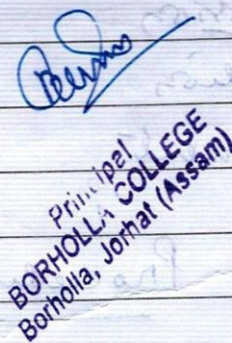 Principal
BORHOLLA COLLEGE
Borholla, Jorhat (Assam)